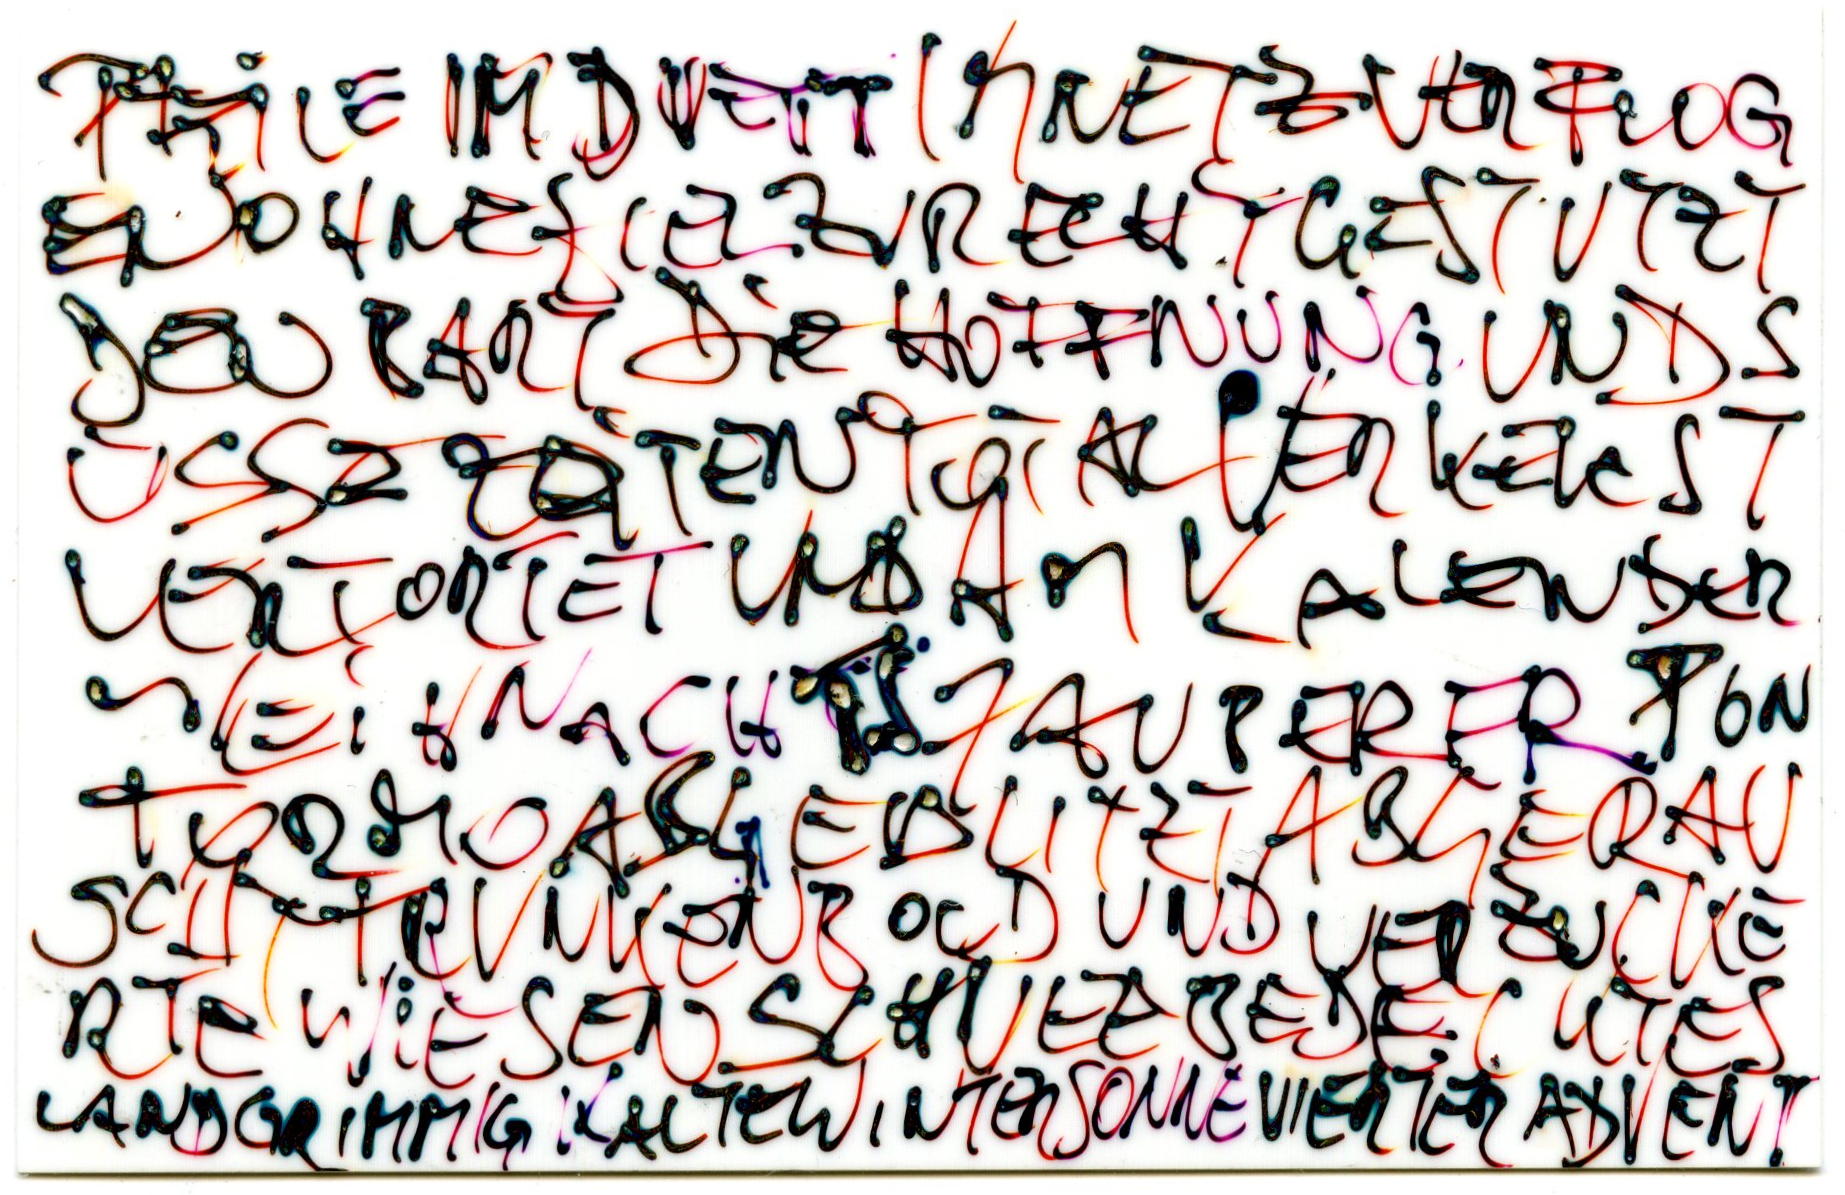 PFEILE IM DUETT IM NETZ VERFLOG
EN OHNE ZIEL ZURECHTGESTUTZT
DEN BART DIE HOFFNUNG UND S
ÜSSE ZEITEN TOTAL VERKEKST
VERTORTET UND AM KALENDER
WEIHNACHTSZAUBERER
ABGEBLITZT ABGERAU
SCHT TRUNKENBOLD UND VERZUCKE
RTE WIESEN SCHNEEBEDECKTES
LAND GRIMMIG KALTE WINTERSONNE VIERTER ADVENT